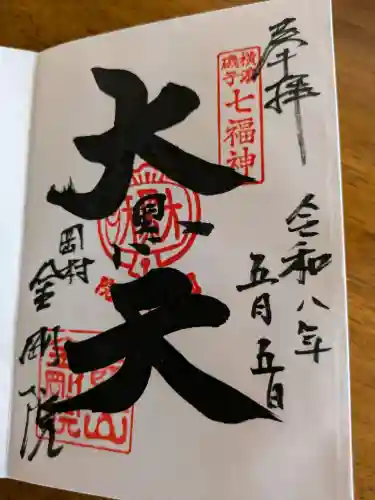 奉拝
令和八年
五月五日
横浜
磯子
七福神
大黒天
岡村
金剛院